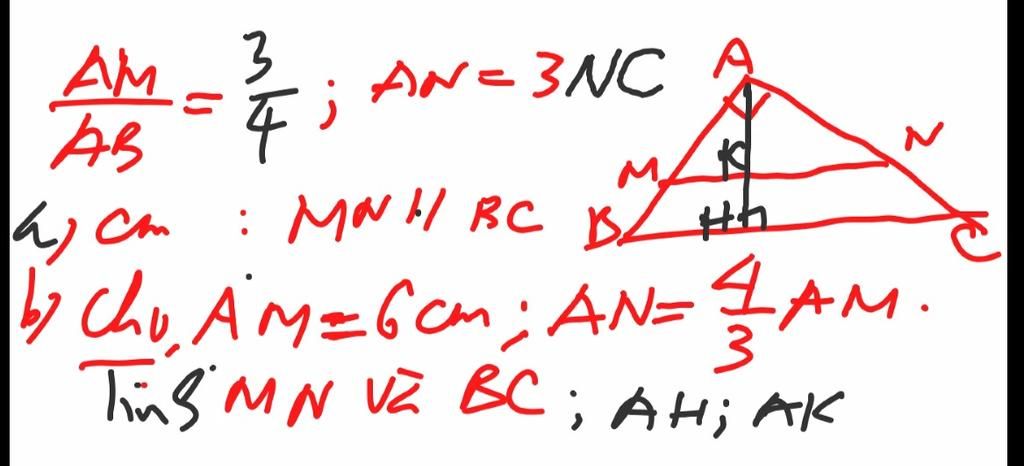 AM/AB = 3/4 ; AN = 3NC
a) cm : MN // BC
b) Cho AM = 6cm ; AN = 4/3 AM .
MN và BC ; AH ; AK
A
M K N
B H C